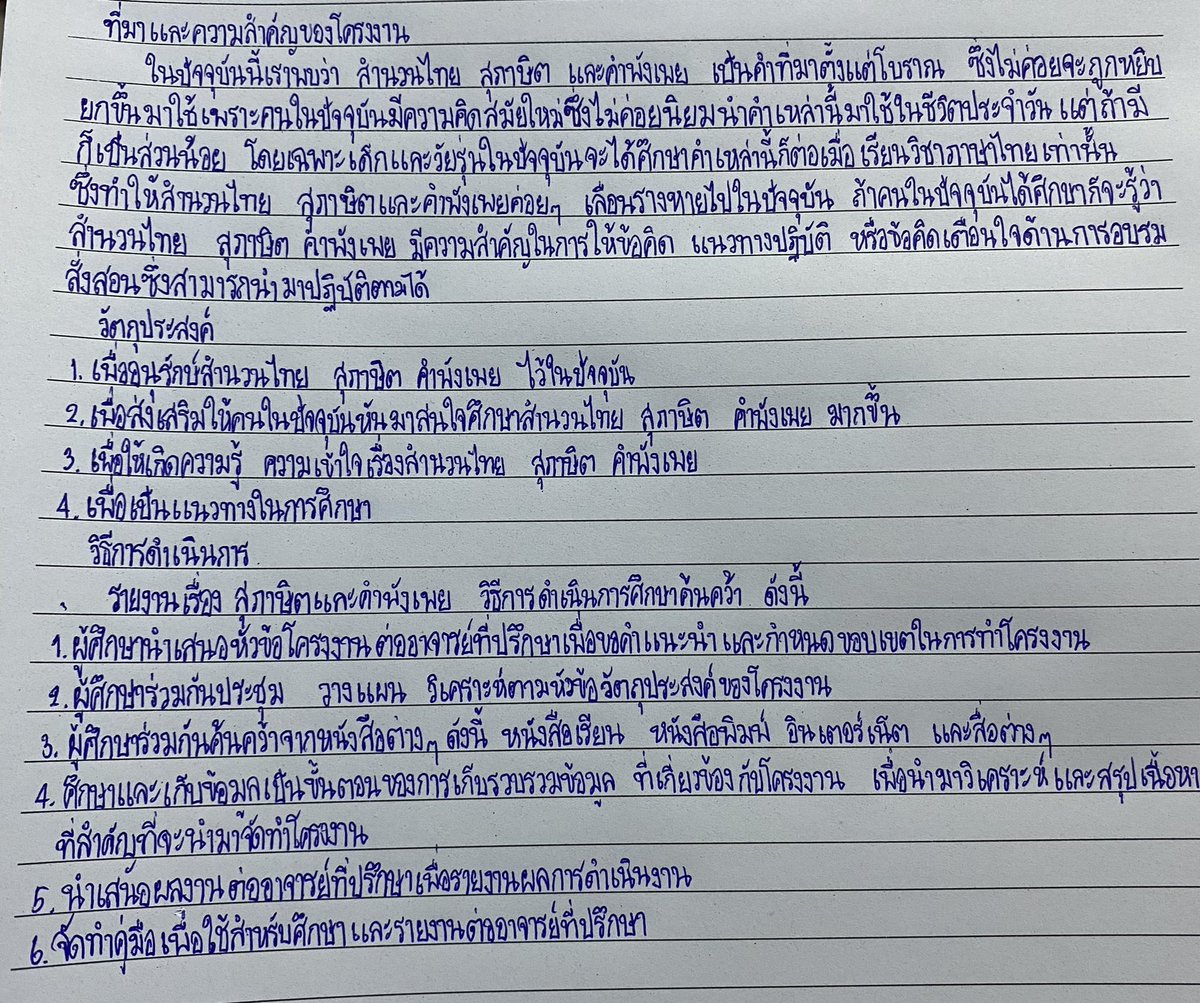 ที่มาและความสำคัญของโครงงาน
ในปัจจุบันนี้เราพบว่า สำนวนไทย สุภาษิต และคำพังเพย เป็นคำที่มาตั้งแต่โบราณ ซึ่งไม่ค่อยจะถูกหยิบ
ยกขึ้นมาใช้เพราะคนในปัจจุบันมีความคิดสมัยใหม่ซึ่งไม่ค่อยนิยมนำคำเหล่านี้มาใช้ในชีวิตประจำวัน แต่ถ้ามี
ก็เป็นส่วนน้อย โดยเฉพาะเด็กและวัยรุ่นในปัจจุบันจะได้ศึกษาคำเหล่านี้ก็ต่อเมื่อเรียนวิชาภาษาไทยเท่านั้น
ซึ่งทำให้สำนวนไทย สุภาษิตและคำพังเพยค่อยๆ เลือนรางหายไปในปัจจุบัน ถ้าคนในปัจจุบันได้ศึกษาก็จะรู้ว่า
สำนวนไทย สุภาษิต คำพังเพย มีความสำคัญในการให้ข้อคิด แนวทางปฏิบัติ หรือข้อคิดเตือนใจด้านการอบรม
สั่งสอนซึ่งสามารถนำมาปฏิบัติตามได้
วัตถุประสงค์
1. เพื่ออนุรักษ์สำนวนไทย สุภาษิต คำพังเพย ไว้ในปัจจุบัน
2. เพื่อส่งเสริมให้คนในปัจจุบันหันมาสนใจศึกษาสำนวนไทย สุภาษิต คำพังเพย มากขึ้น
3. เพื่อให้เกิดความรู้ ความเข้าใจเรื่องสำนวนไทย สุภาษิต คำพังเพย
4. เพื่อเป็นแนวทางในการศึกษา
วิธีการดำเนินการ
รายงานเรื่อง สุภาษิตและคำพังเพย วิธีการดำเนินการศึกษาค้นคว้า ดังนี้
1. ผู้ศึกษานำเสนอหัวข้อโครงงานต่ออาจารย์ที่ปรึกษาเพื่อขอคำแนะนำ และกำหนดขอบเขตในการทำโครงงาน
2. ผู้ศึกษาร่วมกันประชุม วางแผน วิเคราะห์ตามหัวข้อวัตถุประสงค์ของโครงงาน
3. ผู้ศึกษาร่วมกันค้นคว้าจากหนังสือต่างๆ ดังนี้ หนังสือเรียน หนังสือพิมพ์ อินเตอร์เน็ต และสื่อต่างๆ
4. ศึกษาและเก็บข้อมูลเป็นขั้นตอนของการเก็บรวบรวมข้อมูล ที่เกี่ยวข้องกับโครงงาน เพื่อนำมาวิเคราะห์และสรุปเนื้อหา
ที่สำคัญที่จะนำมาจัดทำโครงงาน
5. นำเสนอผลงานต่ออาจารย์ที่ปรึกษาเพื่อรายงานผลการดำเนินงาน
6. จัดทำคู่มือเพื่อใช้สำหรับศึกษาและรายงานต่ออาจารย์ที่ปรึกษา